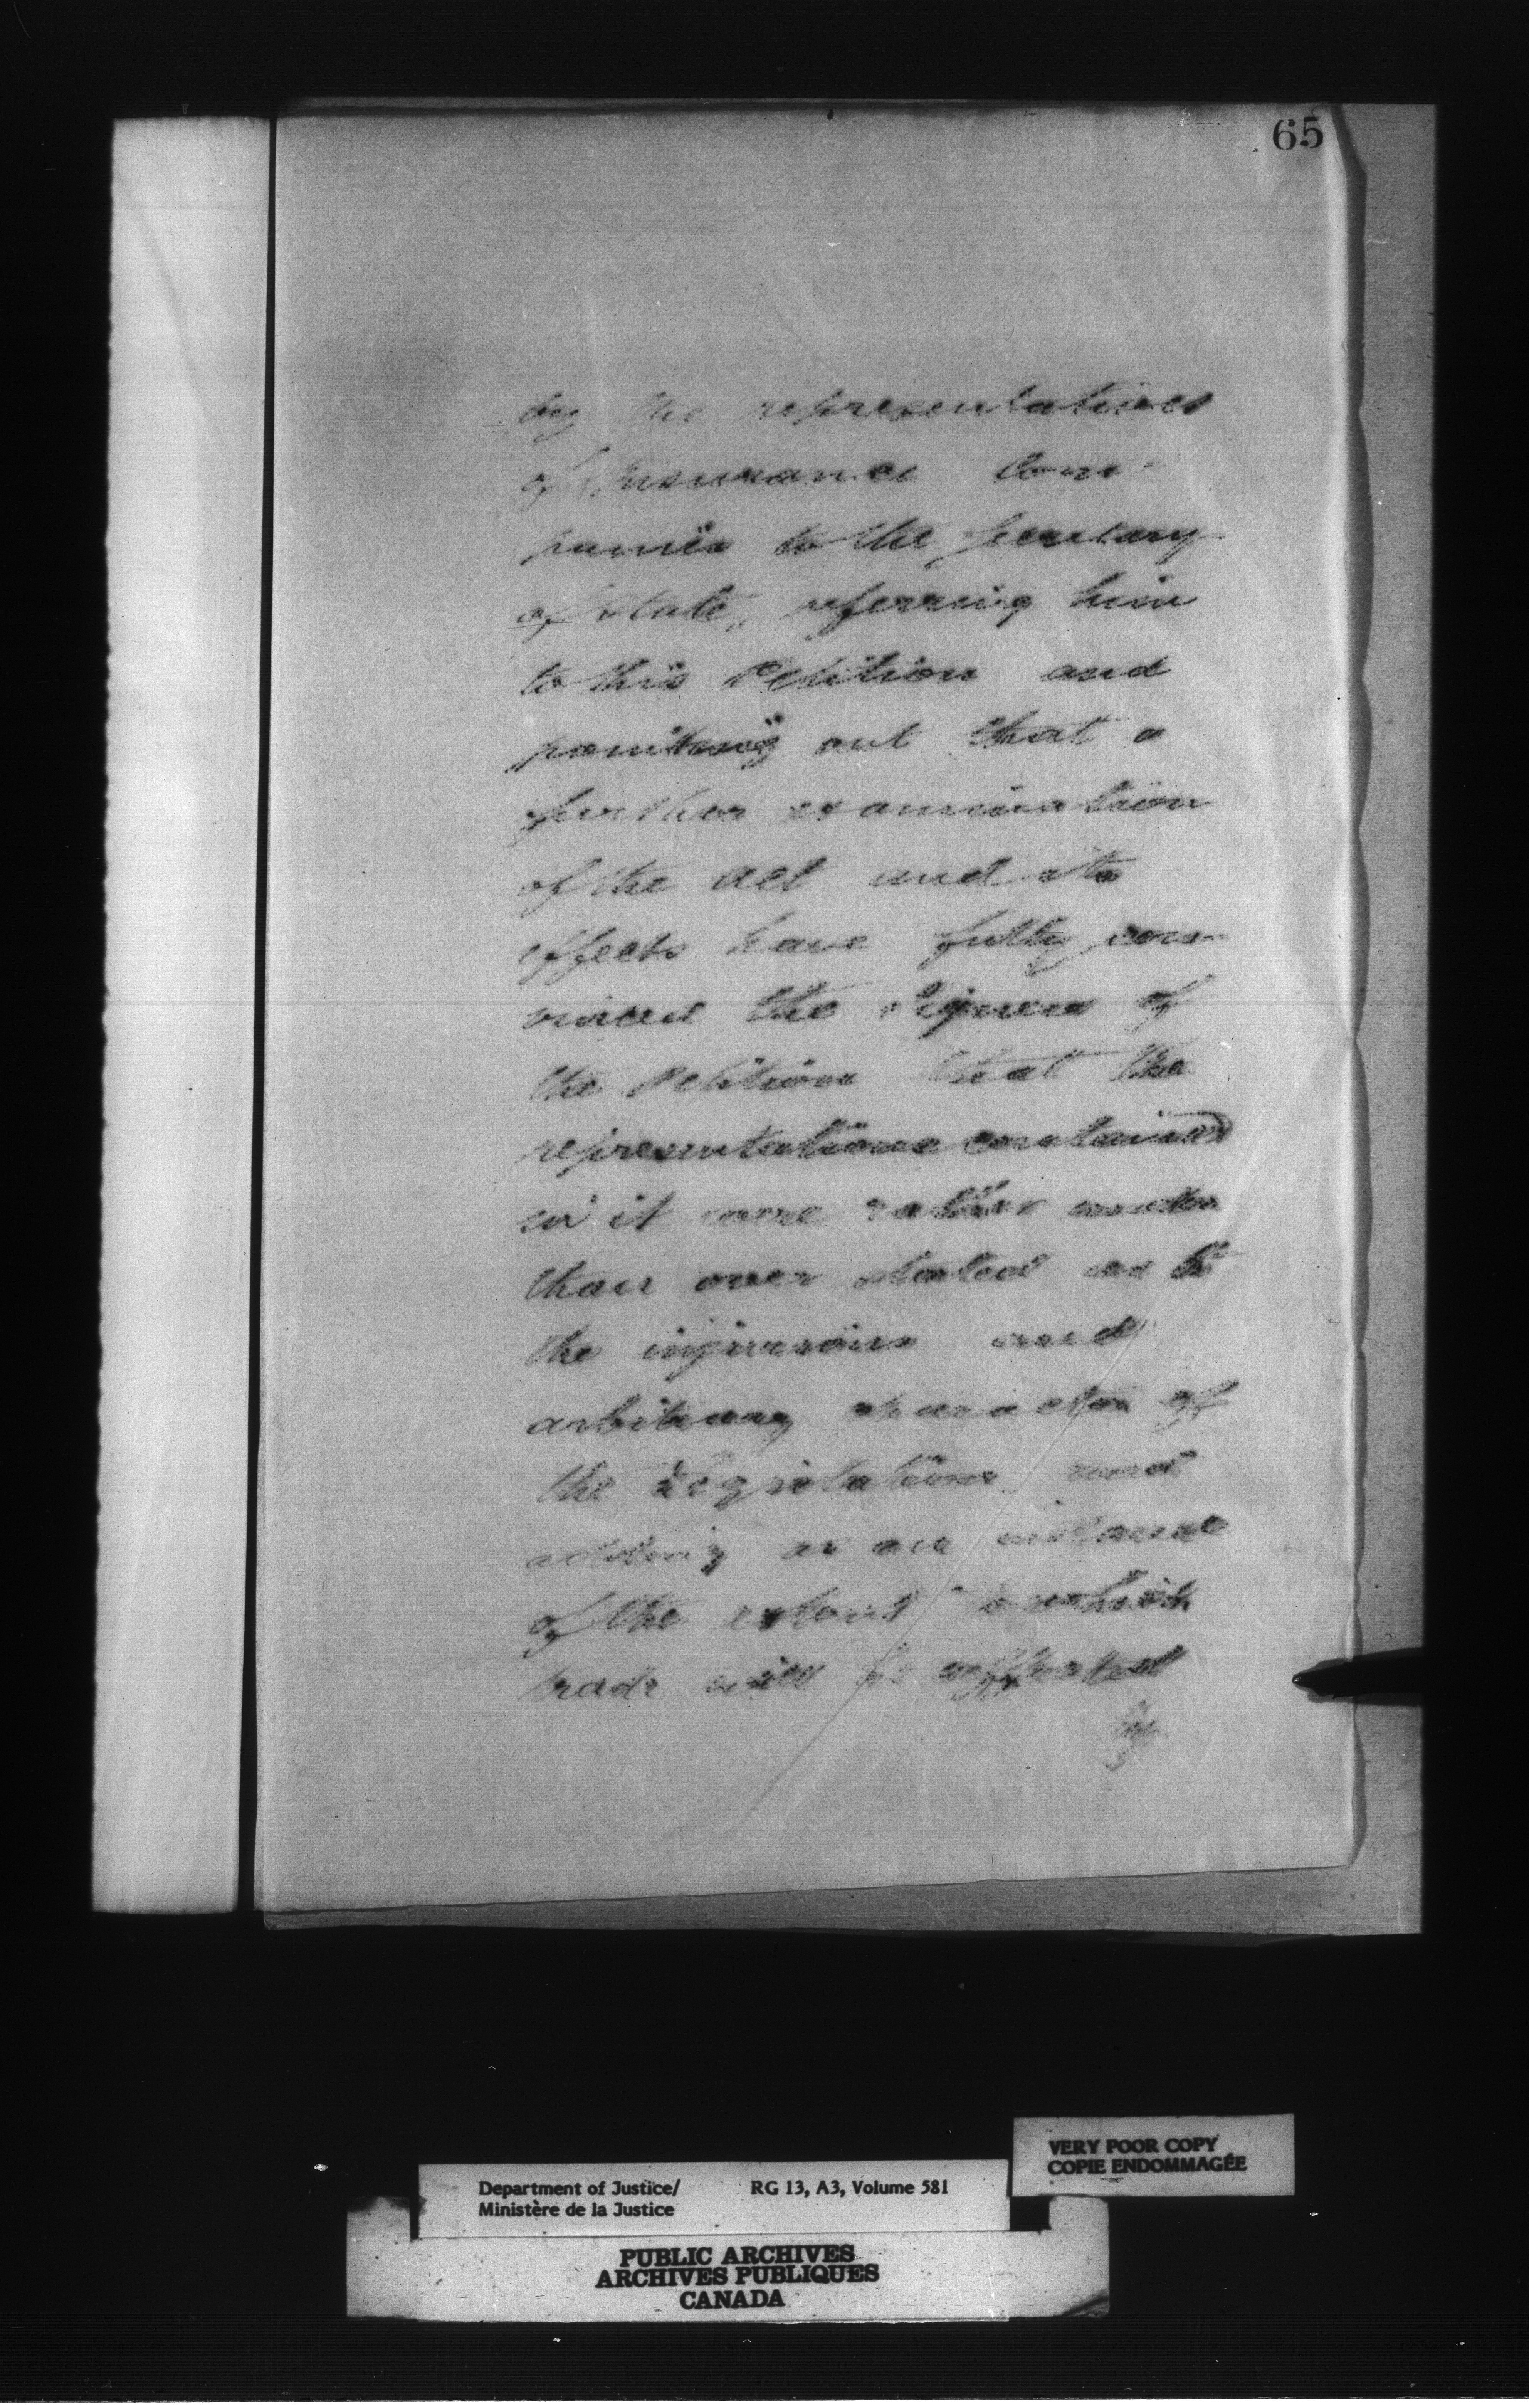 65
by the representatives
of Insurance Com-
panies to the Secretary
of State, referring him
to this Petition and
pointing out that a
further examination
of the Act and its
effects have fully con-
vinced the signers of
the Petition that the
representations contained
in it were rather under
than over stated as to
the injurious and
arbitrary character of
the Legislation and
adding as an instance
of the extent to which
trade will be affected
by
VERY POOR COPY
COPIE ENDOMMAGÉE
Department of Justice/ RG 13, A3, Volume 581
Ministère de la Justice
PUBLIC ARCHIVES
ARCHIVES PUBLIQUES
CANADA